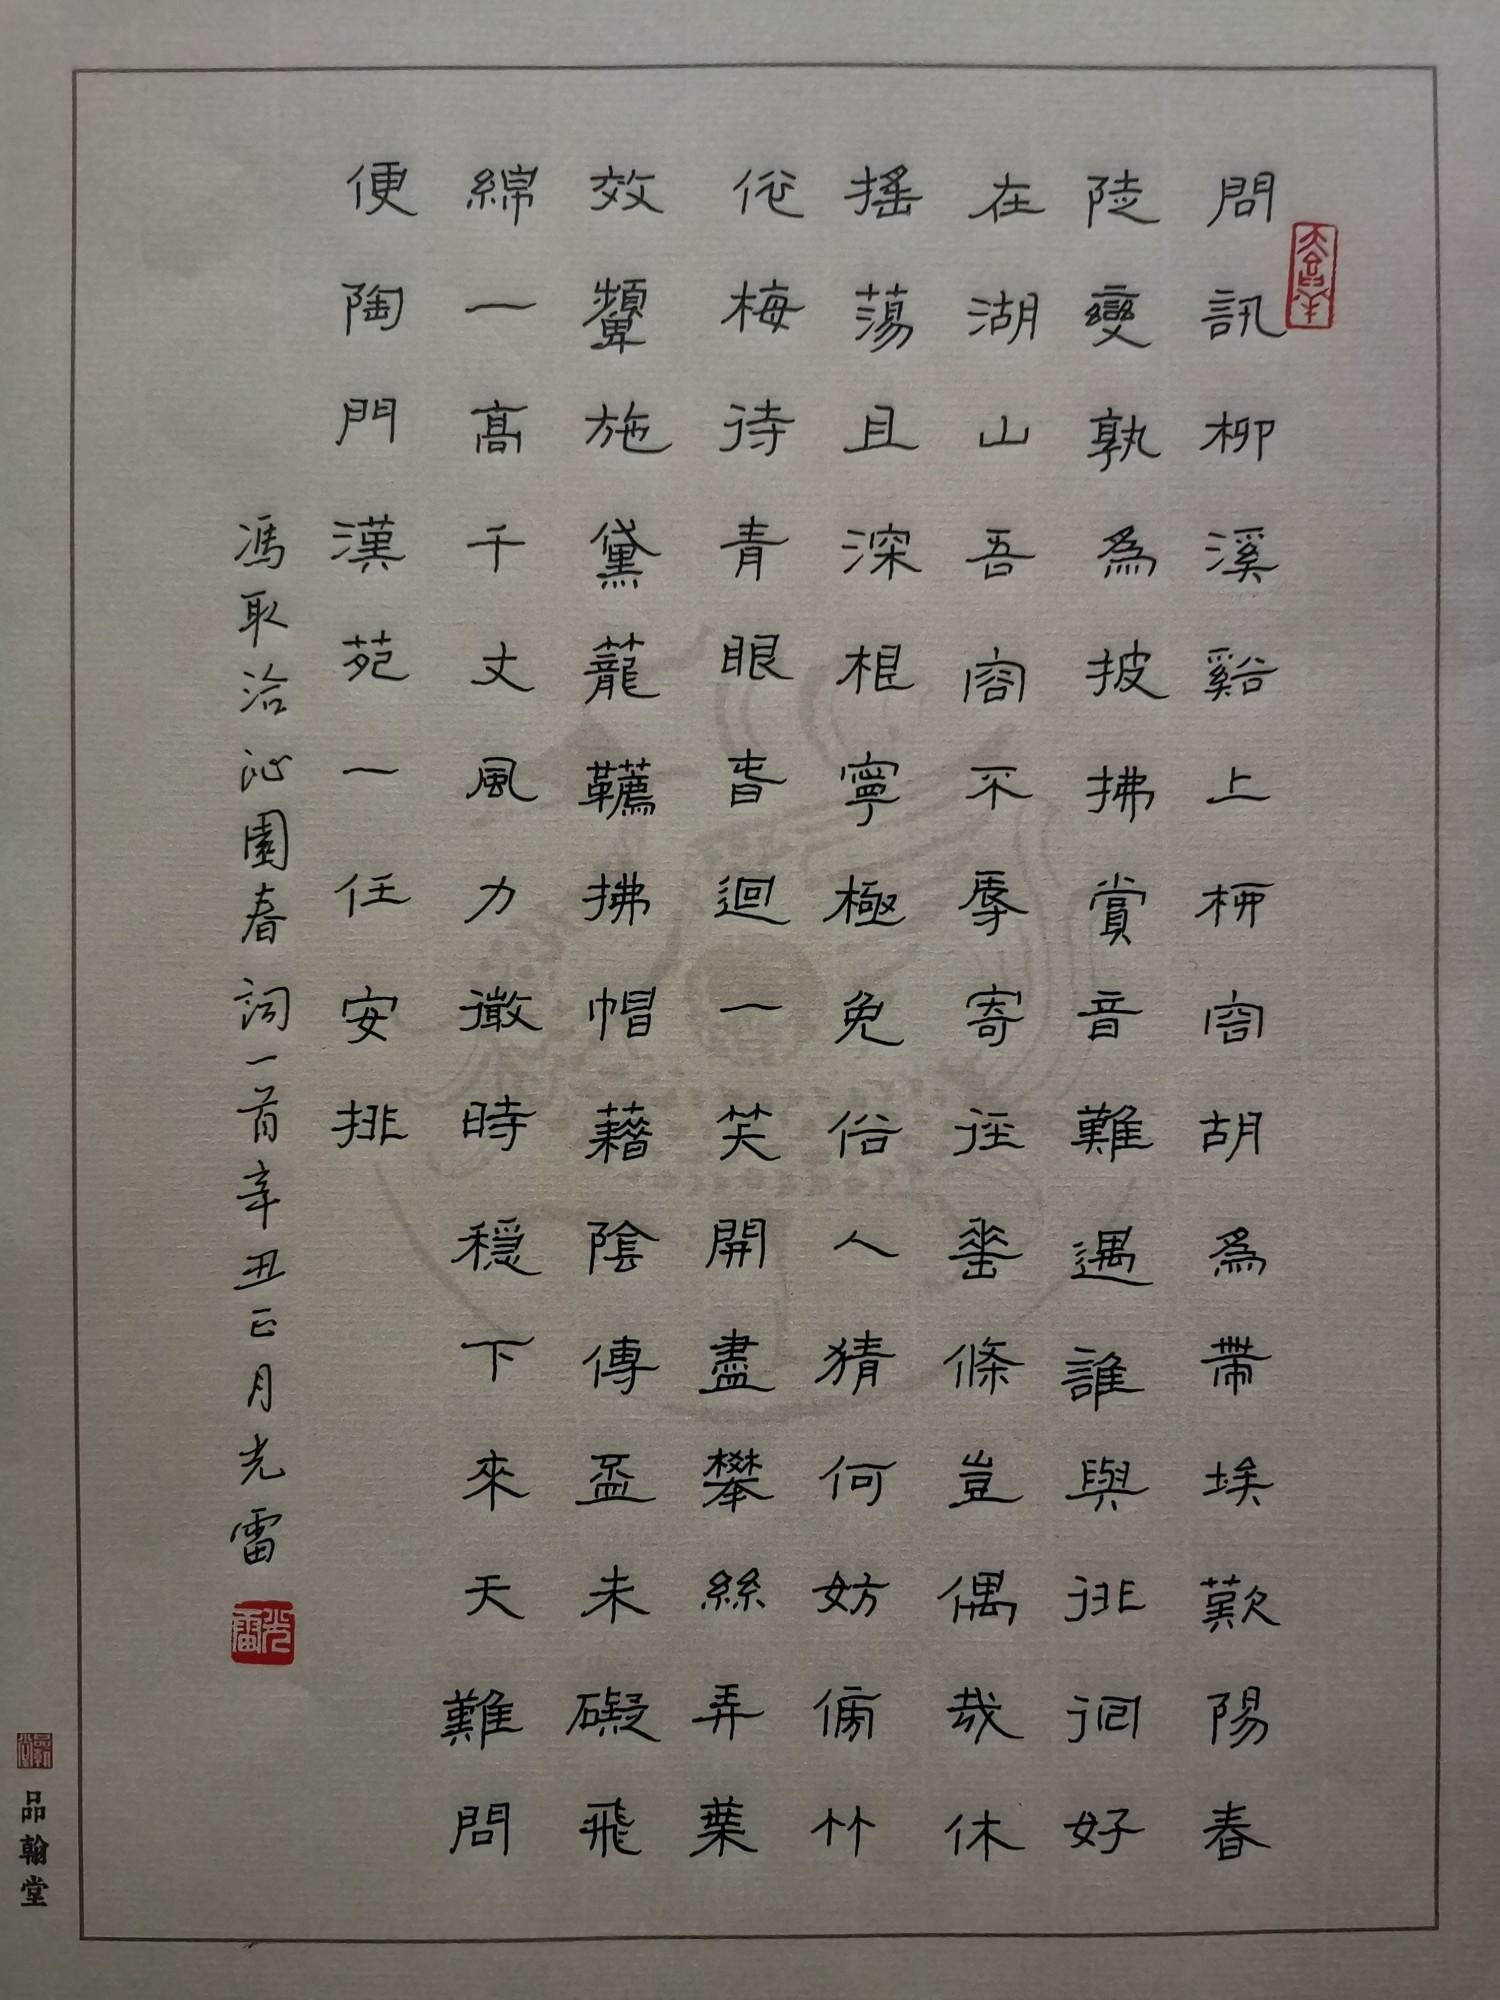 問訊柳溪谿上桺容胡為帶埃歎陽春
陡變孰為披拂賞音難遇誰與徘徊好
在湖山吾容不辱寄徑垂條豈偶哉休
搖蕩且深根寧極免俗人猜何妨傍竹
依梅待青眼春迴一笑開盡攀絲弄葉
效顰施黛蘢韉拂帽藉陰傳盃未礙飛
綿一高千丈風力微時穩下來天難問
便陶門漢苑一任安排
馮取洽沁園春詞一首辛丑正月光雷
光雷
品翰堂